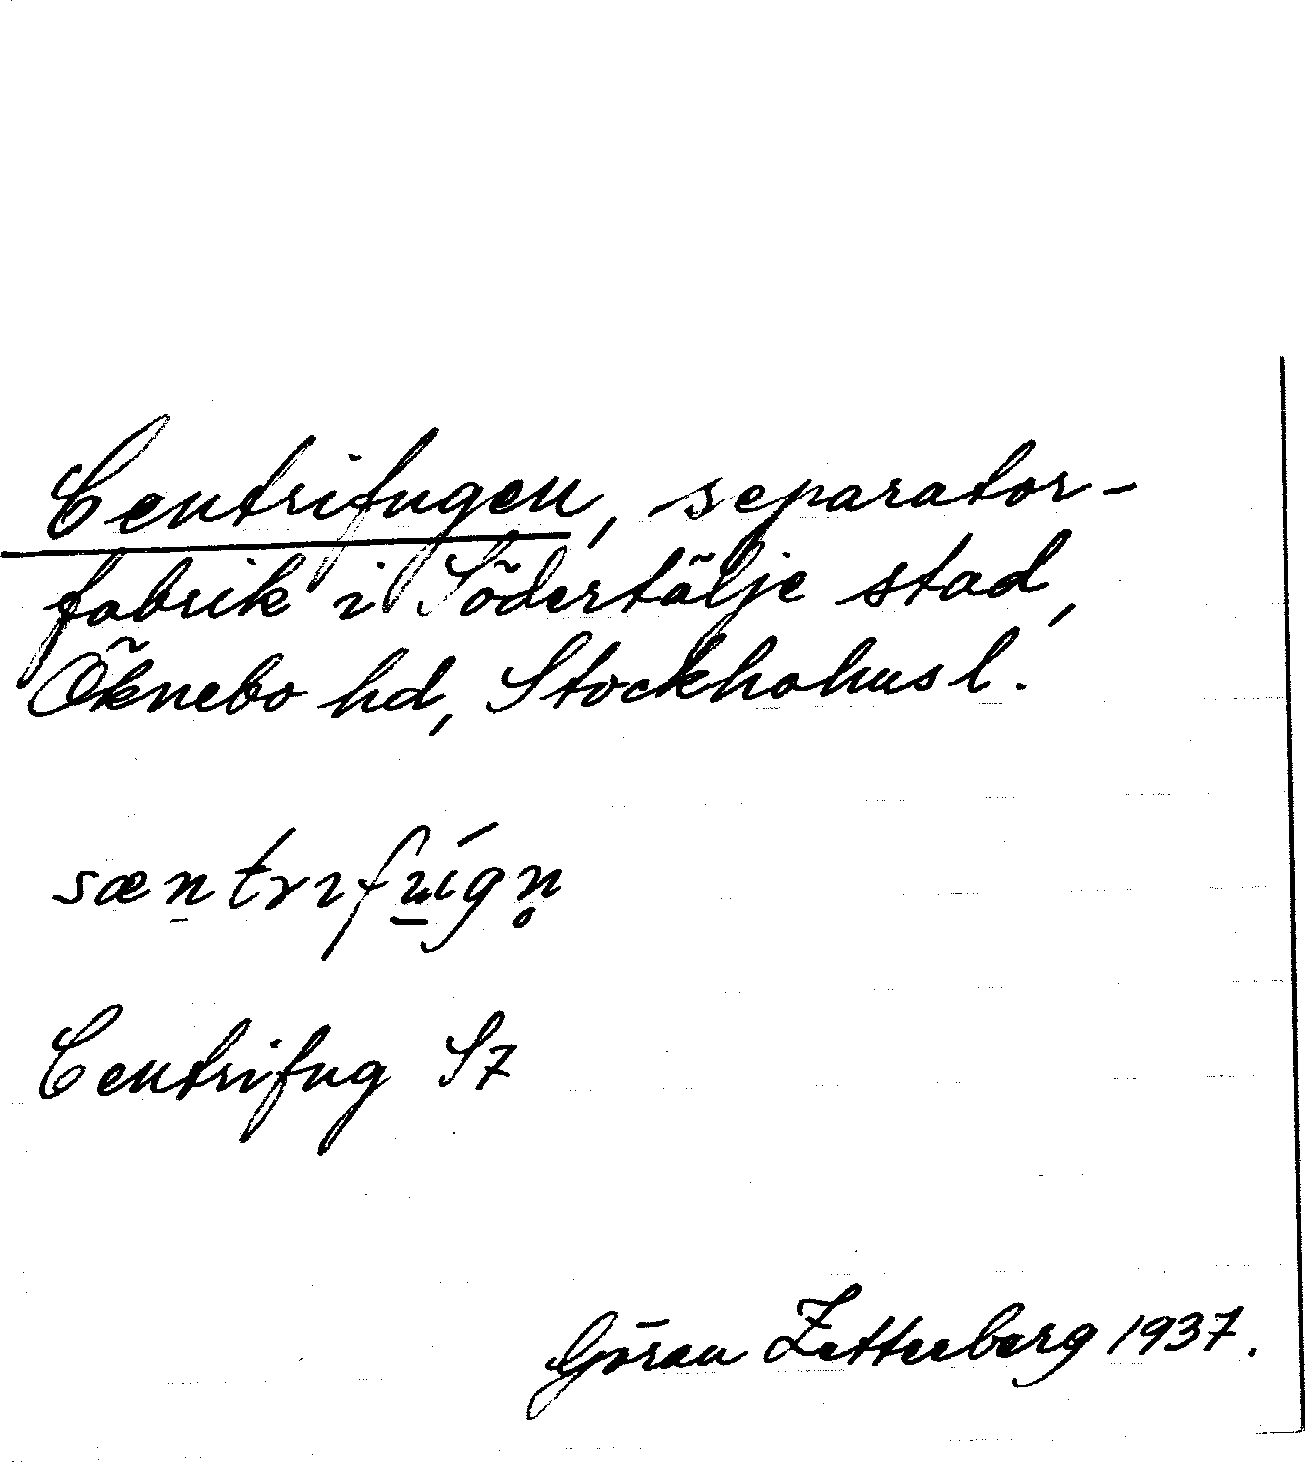 Centrifugen, separator-
fabrik i Södertälje stad,
Öknebo hd, Stockholms l.
sæn̠trıfu̠ı́gn̥
Centrifug S7
Göran Zetterberg 1937.